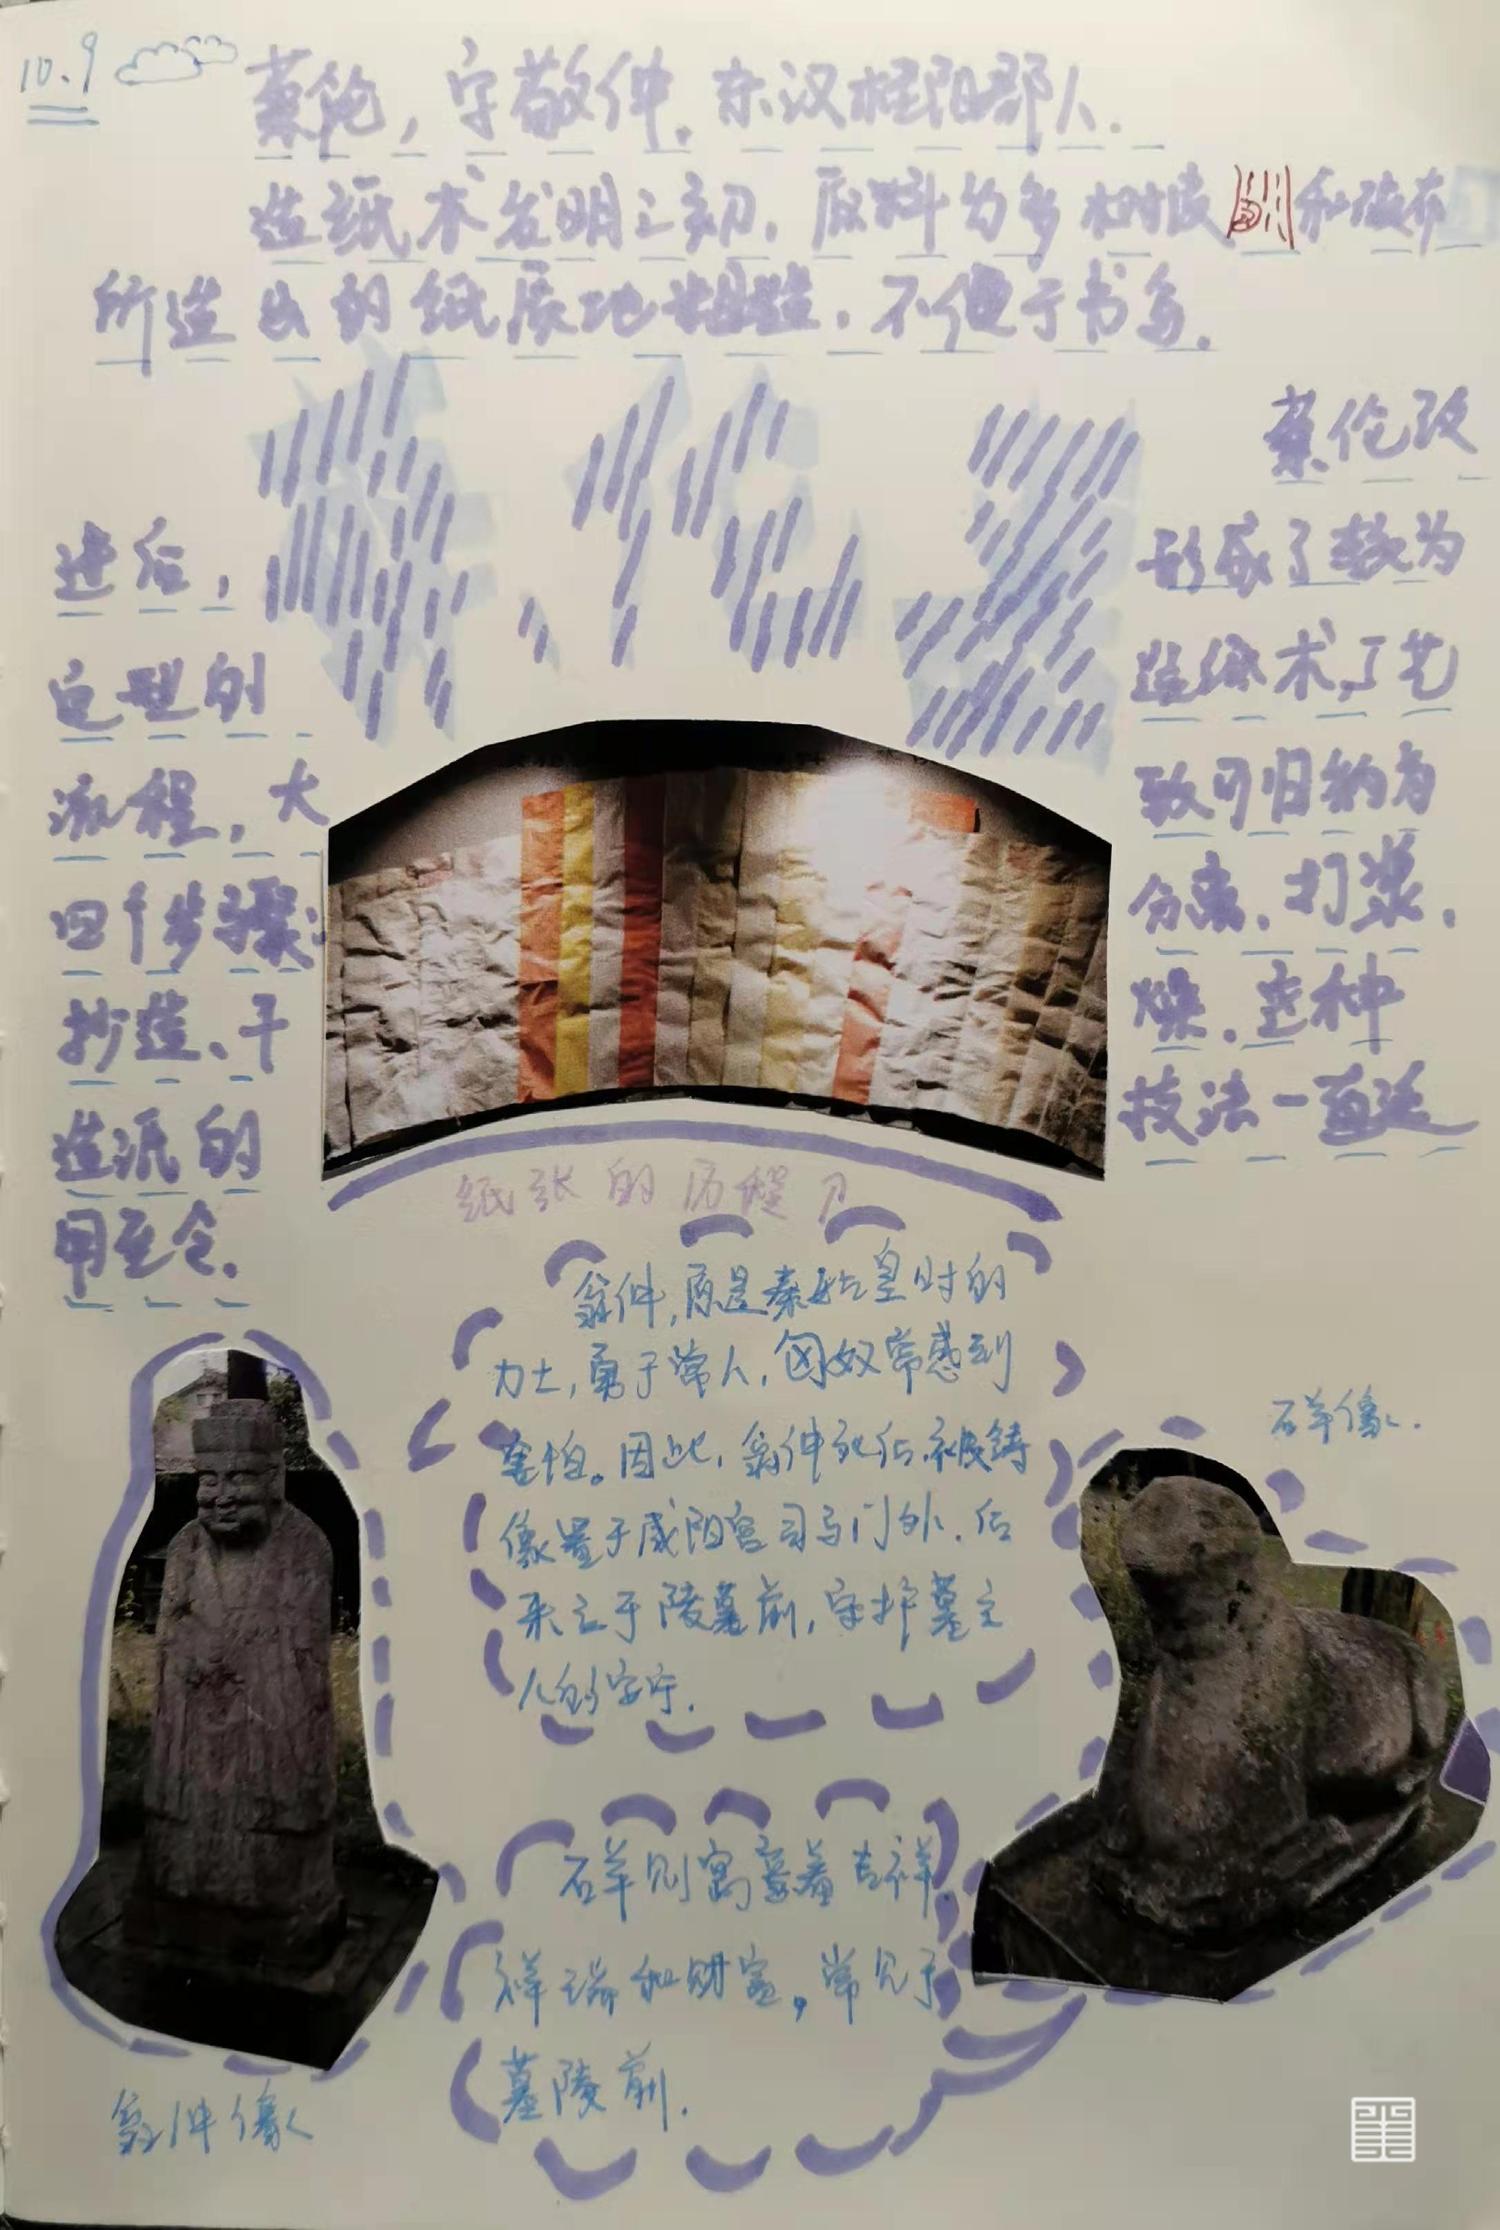 10.9
蔡伦,字敬仲.东汉桂阳郡人.
造纸术发明之初,原料为多树皮和破布
所造出的纸质地粗糙.不便于书写.
蔡伦改
进后,形成了较为
定型的造纸术工艺
流程,大致可归纳为
四个步骤:分离、打浆、
抄造、干燥.这种
造纸的技法一直沿
用至今.
纸张的历程
翁仲,原是秦始皇时的
力士,勇于常人,匈奴常感到
害怕。因此,翁仲死后,被铸
像置于咸阳宫司马门外.后
来立于陵墓前,守护墓主
人的安宁.
石羊像.
石羊则寓意着吉祥、
祥瑞和财富,常见于
墓陵前.
翁仲像